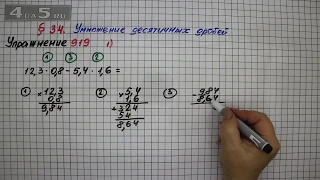 4A5.ru
§ 34. Умножение десятичных дробей
Упражнение 919 1)
① ③ ②
12,3 · 0,8 − 5,4 · 1,6 =
① × 12,3
0,8
9,84
② × 5,4
1,6
+ 324
54
8,64
③ − 9,84
8,64